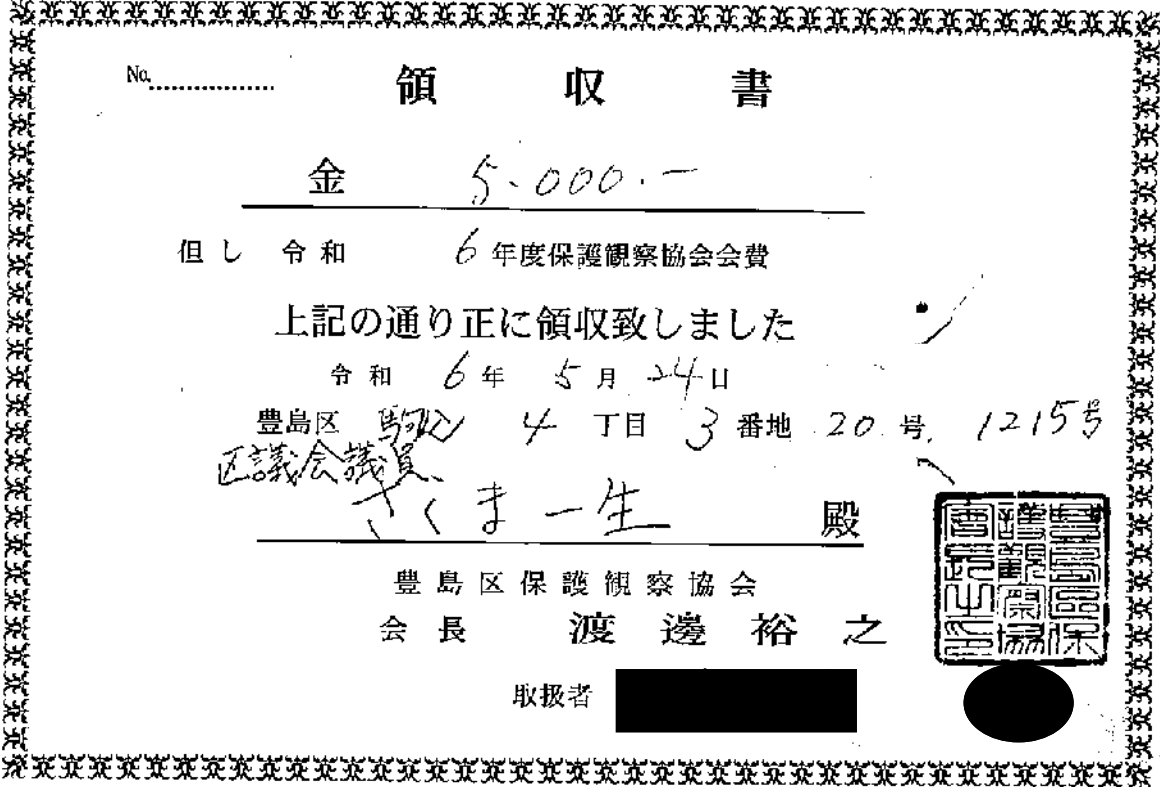 No.
領収書
金 5.000.-
但し 令和 6年度保護観察協会会費
上記の通り正に領収致しました
令和 6年 5月 24日
豊島区 駒込 4丁目 3番地 20号. 1215号
区議会議員
さくま一生 殿
豊島区保護観察協会
会長 渡邊裕之
豊島区保護観察協会長之印
取扱者